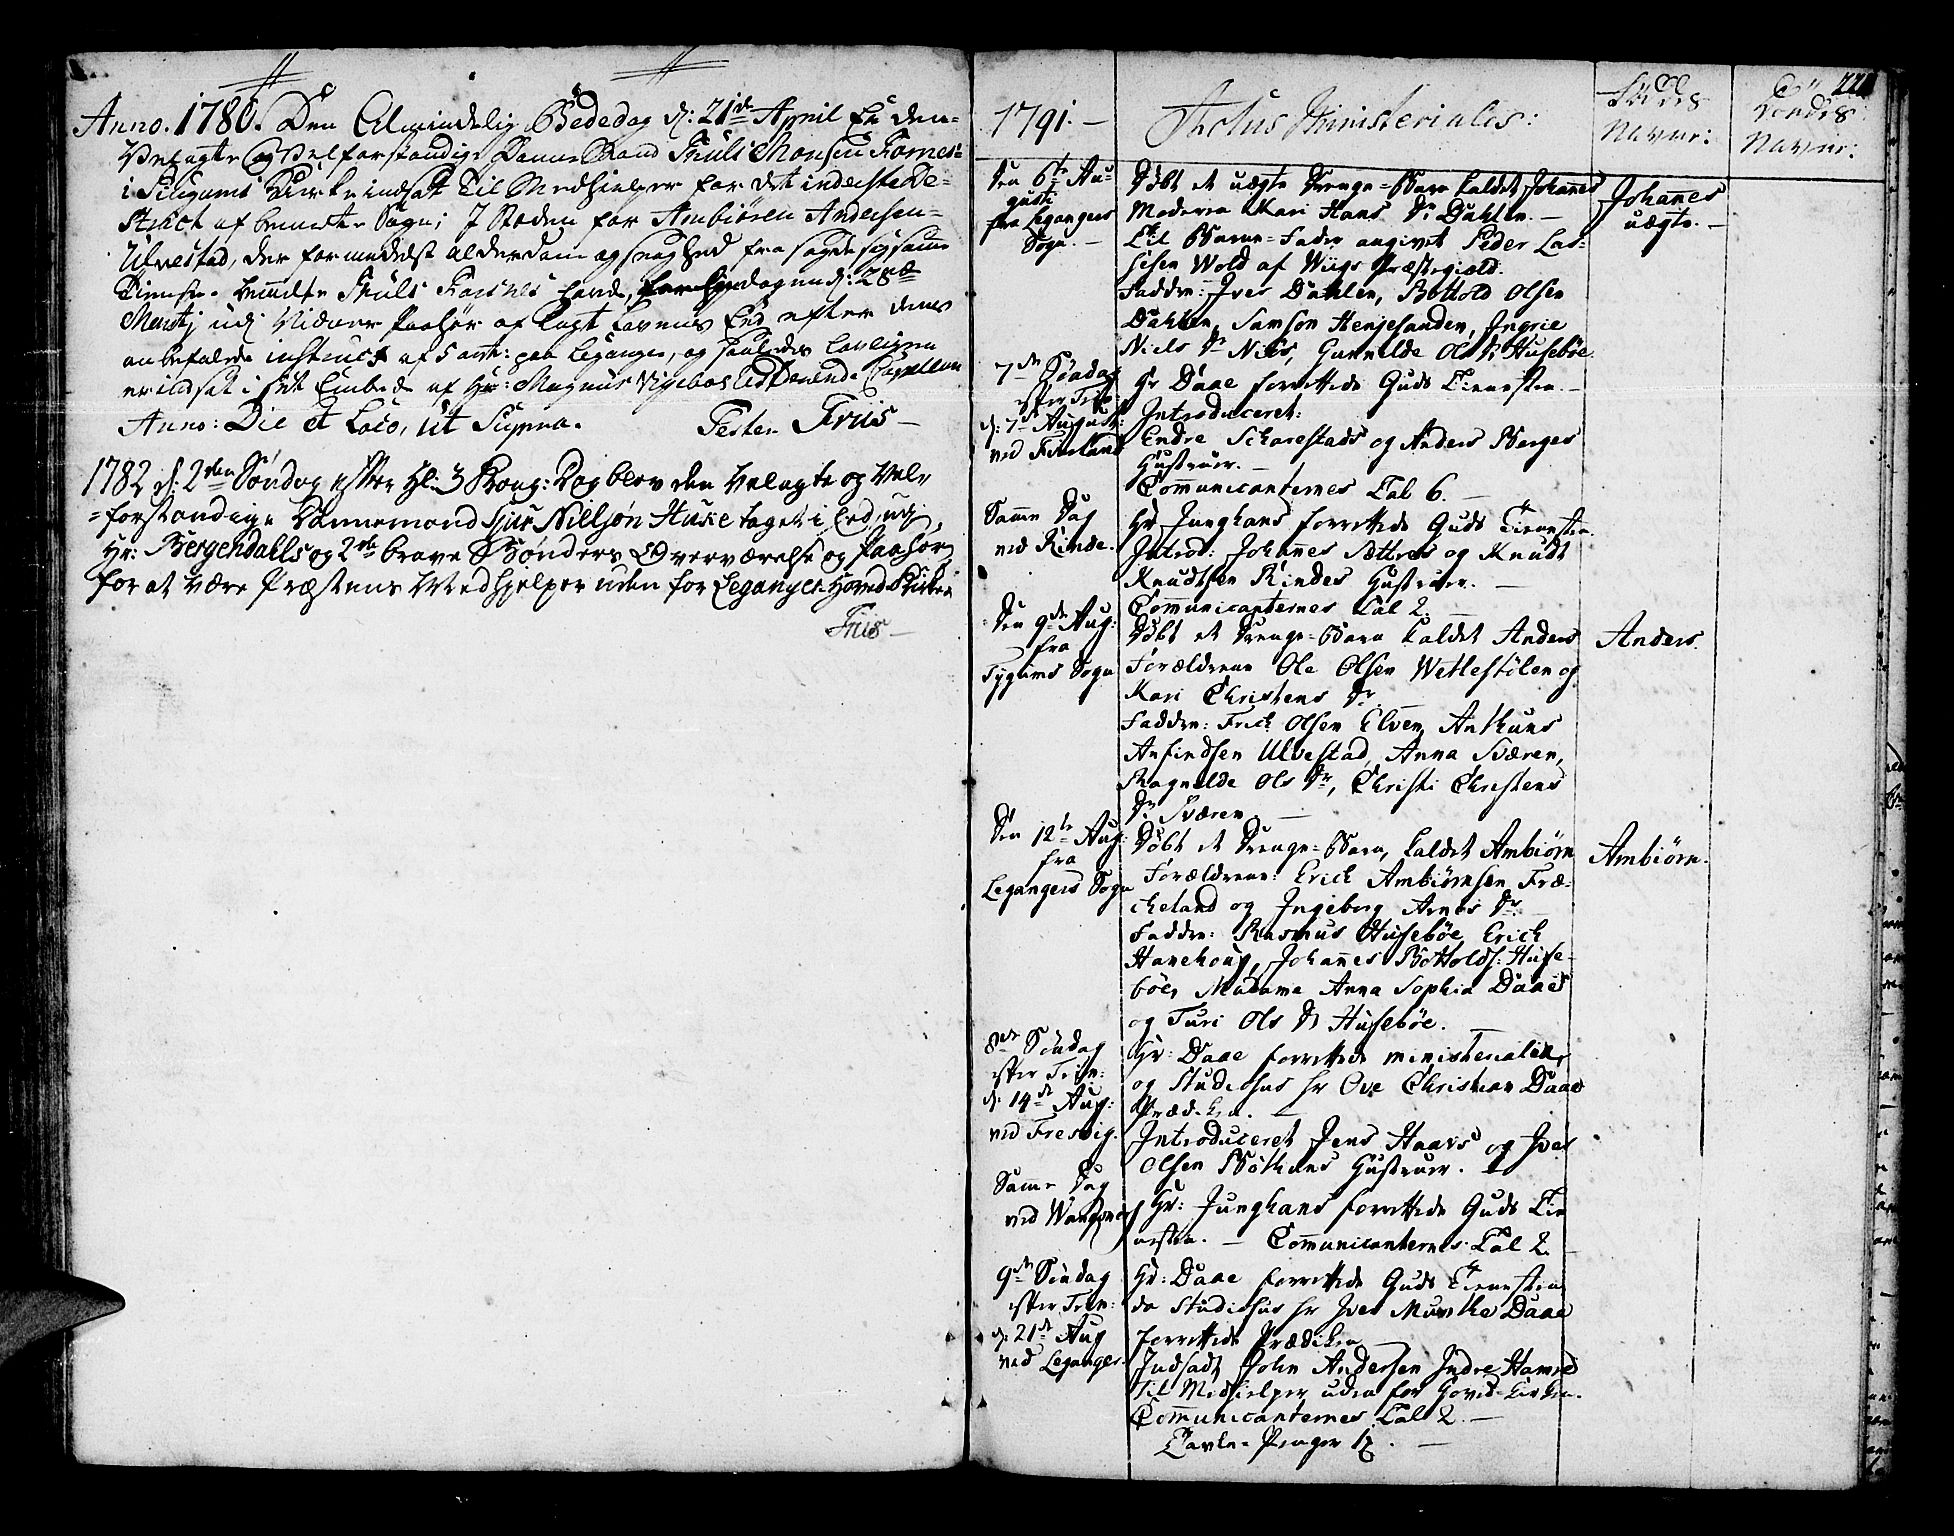 Anno. 1780. Den Almindelig Bededag d: 21de April Er den
Velagte og Velforstandige Danne Mand Truls Monsen Farnes
i Tiugums Kirke indsatt til Medhielper for det inderste De-
strict af bemelte Sogn; I Steden for Ambiören Andersen
Ulvestad, der formedelst Alderdom og svaghed fra sagde sig samme
Tieneste. bemelte Truls Farnes havde, dagen d: 28de
Martj udj Vidner Paahör aflagt Lovens Eed efter dens
anbefalede instrux af 5 paa Leganger, og saaledes lovligen
er indsat i sit Embede af Hr: Magnus Residerende Capellan
Anno: Die et Loco, ut Supra. Tester Friis
1782 d. 2den Söndag efter Hl: 3 Kong: Dag blev den Velagte og Vel-
forstandige Dannemand Siur Nillsön Huse taget i Eed udj
Hr: Bergendahls og 2de brave Bönders Overværelse og Paahör
for at være Præstens Medhjelper uden for Leganger Hoved Kirke
Friis
221
1791. Actus Ministeriales: Föddes Navne: Dendes Navne:
Den 6te Au-
gusti
fra Legangers
Sogn.
Döbt et uægte Drenge-Barn kaldet Johannes
Moderen Kari Hans Dr Dahlen.
Til Barne-Fader angivet Peder Las-
sesen Wold af Wiigs Præstegield.
Faddere: Iver Dahlen, Bottold Olsen
Dahlen, Samson Henjesanden, Ingrie
Niels Dr Niös, Gunnilde Ols Dr Husebøe.
Johannes
uægte.
7de Söndag
efter Trin:
d: 7de August:
ved Fierland
Hr Daae forrettede Guds Tienesten.
Introduceret:
Endre Scharestads og Anders Berges
Hustruer.
Communicanternes Tal 6.
Samme Dag
ved Rinde.
Hr Junghans forrettede Guds Tienesten.
Introd: Johannes Sættres og Knudt
Knudtsen Rindes Hustruer.
Communicanternes Tal 2.
Den 9de Aug:
fra
Tygums Sogn
Döbt et Drenge-Barn kaldet Anders
Forældrene Ole Olsen Wetlestölen og
Kari Christens Dr
Faddere: Erich Olsen Elven, Anthuns
Anfindsen Ulvestad, Anna Sværen,
Ragnilde Ols Dr, Christi Christens
Dr Sværen.
Anders.
Den 12te Aug:
fra
Legangers Sogn
Döbt et Drenge-Barn, kaldet Ambiörn
Forældrene: Erich Ambiörnsen Fræ-
cheland og Ingeborg Arnes Dr
Faddere: Rasmus Husebøe, Erich
Hanehoug, Johannes Bottolds: Huse-
böe, Madame Anna Sophia Daaes
og Turi Ols Dr Husebøe.
Ambiörn.
8de Söndag
efter Trin:
d: 14de Aug:
ved Fresvig.
Hr: Daae forrettede ministerialia,
og Studiosus Hr Ove Christian Daae
Prædiken.
Introduceret Jens Haavs og Iver
Olsen Böthuns Hustruer.
Samme Dag
ved Wangsnes
Hr: Junghans forrettede Guds Tie-
nesten. Communicanternes Tal 2.
9de Söndag
efter Trin:
d: 21de Aug
ved Leganger.
Hr: Daae forrettede Guds Tienesten
da Studiosus Hr Iver Munthe Daae
forrettede Prædiken
Indsadt John Andersen Indre Hamre
til Medhielper uden for Hoved-Kirken.
Communicanternes Tal 2.
Tavle-Penger